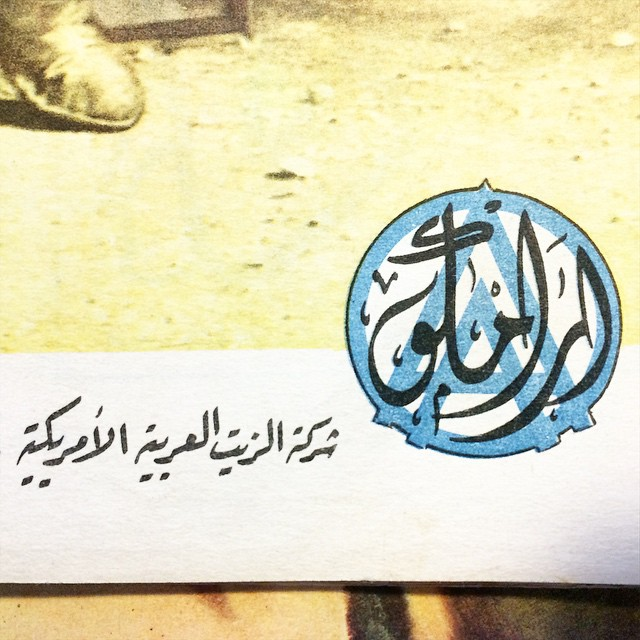 شركة الزيت العربية الأمريكية